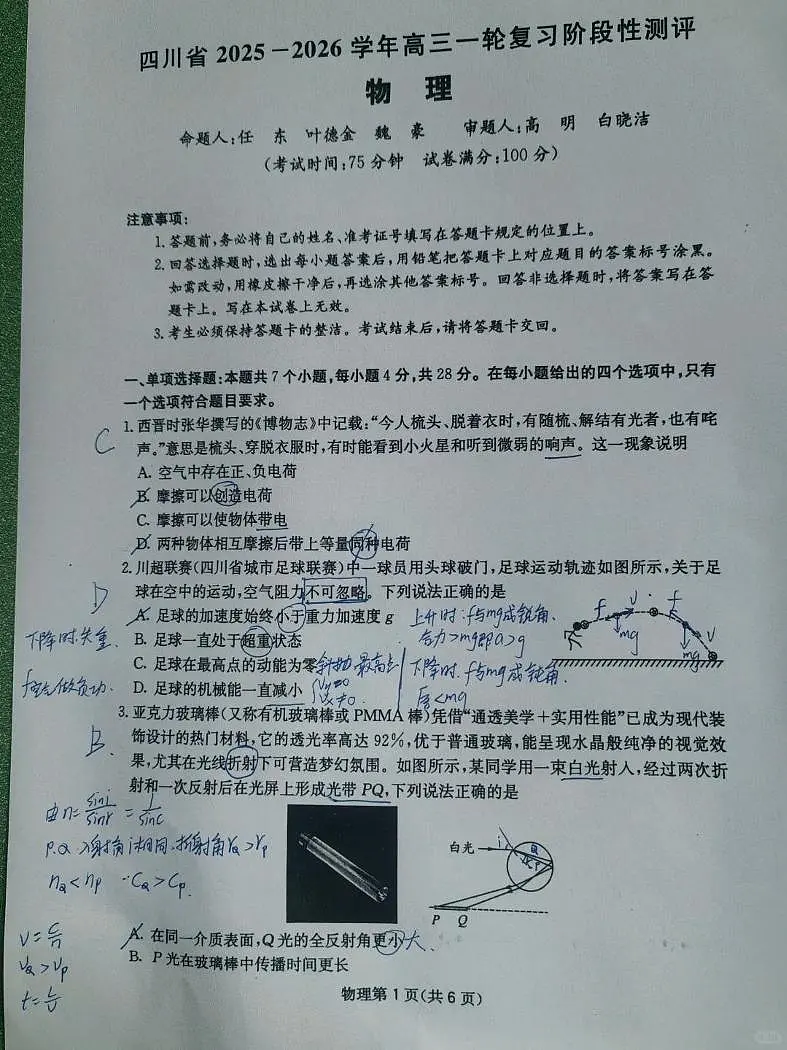 四川省2025-2026学年高三一轮复习阶段性测评
物 理
命题人:任 东 叶德金 魏 豪 审题人:高 明 白晓洁
(考试时间:75分钟 试卷满分:100分)
注意事项:
1.答题前,务必将自己的姓名、准考证号填写在答题卡规定的位置上。
2.回答选择题时,选出每小题答案后,用铅笔把答题卡上对应题目的答案标号涂黑。
如需改动,用橡皮擦干净后,再选涂其他答案标号。回答非选择题时,将答案写在答
题卡上。写在本试卷上无效。
3.考生必须保持答题卡的整洁。考试结束后,请将答题卡交回。
一、单项选择题:本题共7个小题,每小题4分,共28分。在每小题给出的四个选项中,只有
一个选项符合题目要求。
1.西晋时张华撰写的《博物志》中记载:“今人梳头、脱着衣时,有随梳、解结有光者,也有咤
C
声。”意思是梳头、穿脱衣服时,有时能看到小火星和听到微弱的响声。这一现象说明
A. 空气中存在正、负电荷
B. 摩擦可以创造电荷
C. 摩擦可以使物体带电
D. 两种物体相互摩擦后带上等量同种电荷
2.川超联赛(四川省城市足球联赛)中一球员用头球破门,足球运动轨迹如图所示,关于足
D
球在空中的运动,空气阻力不可忽略。下列说法正确的是
A. 足球的加速度始终小于重力加速度g
上升时:f与mg成锐角.
合力>mg即a>g
f V f V mg mg
下降时.失重.
B. 足球一直处于超重状态
C. 足球在最高点的动能为零
斜抛最高点
Vy=0
Vx≠0.
下降时.f与mg成钝角.
F合<mg
f空气做负功.
D. 足球的机械能一直减小
3.亚克力玻璃棒(又称有机玻璃棒或PMMA棒)凭借“通透美学+实用性能”已成为现代装
B.
饰设计的热门材料,它的透光率高达92%,优于普通玻璃,能呈现水晶般纯净的视觉效
果,尤其在光线折射下可营造梦幻氛围。如图所示,某同学用一束白光射入,经过两次折
射和一次反射后在光屏上形成光带PQ,下列说法正确的是
由n=sini/sinr=1/sinC
P.Q入射角i相同.折射角rQ>rP
nQ<nP ∴CQ>CP.
白光 i Q r P
P Q
A. 在同一介质表面,Q光的全反射角更小
大.
B. P光在玻璃棒中传播时间更长
V=c/n
VQ>VP
t=L/v
物理第1页(共6页)